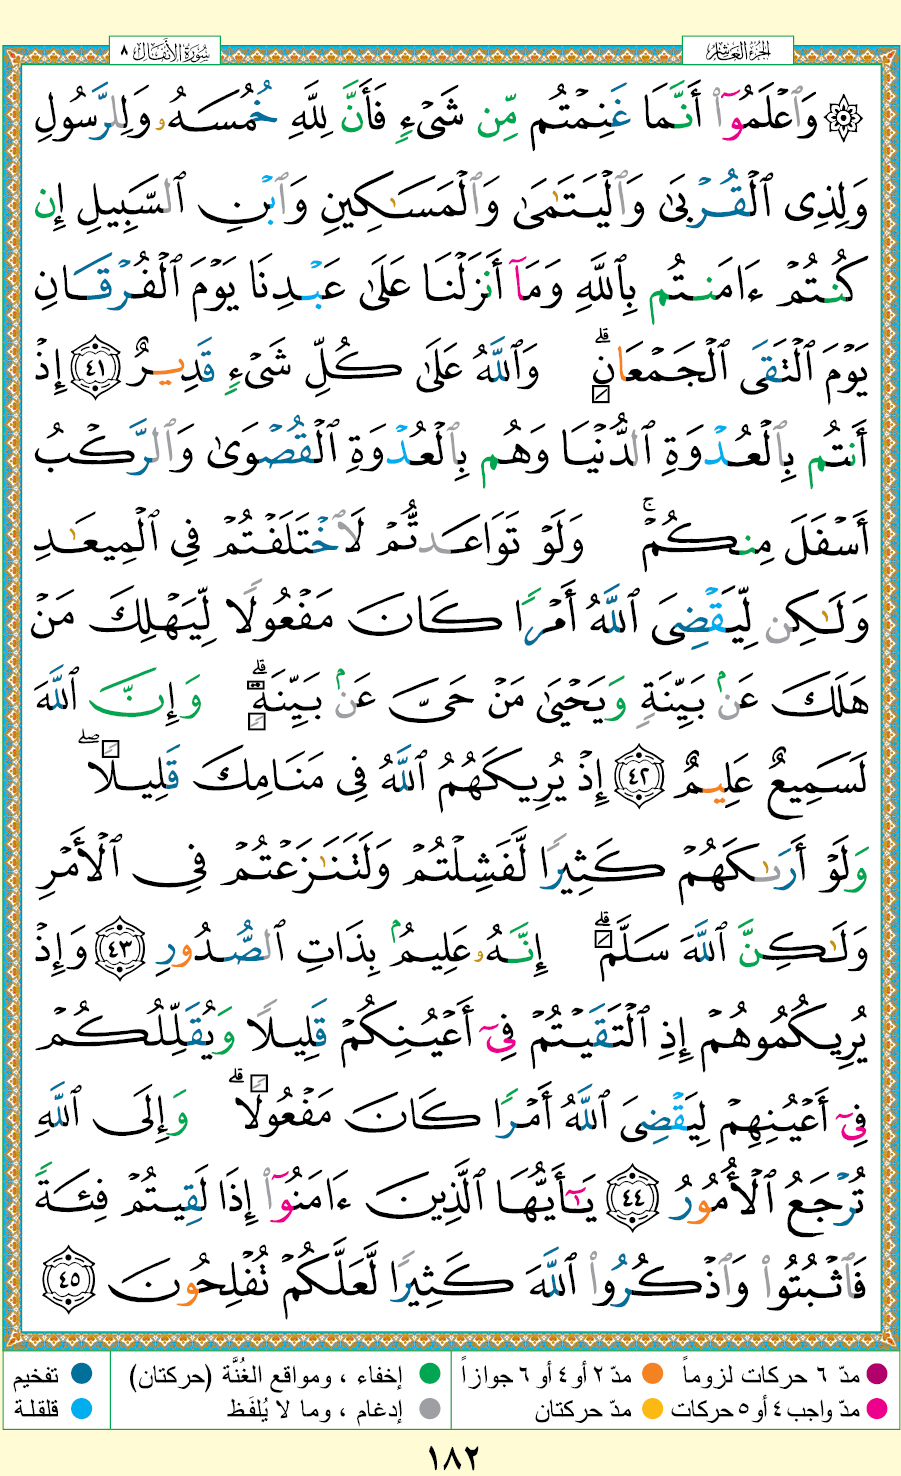 الجزء العاشر
سورة الأنفال ٨
۞ وَٱعْلَمُوٓا۟ أَنَّمَا غَنِمْتُم مِّن شَىْءٍ فَأَنَّ لِلَّهِ خُمُسَهُۥ وَلِلرَّسُولِ
وَلِذِى ٱلْقُرْبَىٰ وَٱلْيَتَـٰمَىٰ وَٱلْمَسَـٰكِينِ وَٱبْنِ ٱلسَّبِيلِ إِن
كُنتُمْ ءَامَنتُم بِٱللَّهِ وَمَآ أَنزَلْنَا عَلَىٰ عَبْدِنَا يَوْمَ ٱلْفُرْقَانِ
يَوْمَ ٱلْتَقَى ٱلْجَمْعَانِ ۗ وَٱللَّهُ عَلَىٰ كُلِّ شَىْءٍ قَدِيرٌ ٤١ إِذْ
أَنتُم بِٱلْعُدْوَةِ ٱلدُّنْيَا وَهُم بِٱلْعُدْوَةِ ٱلْقُصْوَىٰ وَٱلرَّكْبُ
أَسْفَلَ مِنكُمْ ۚ وَلَوْ تَوَاعَدتُّمْ لَٱخْتَلَفْتُمْ فِى ٱلْمِيعَـٰدِ
وَلَـٰكِن لِّيَقْضِىَ ٱللَّهُ أَمْرًا كَانَ مَفْعُولًا لِّيَهْلِكَ مَنْ
هَلَكَ عَنۢ بَيِّنَةٍ وَيَحْيَىٰ مَنْ حَىَّ عَنۢ بَيِّنَةٍ ۗ وَإِنَّ ٱللَّهَ
لَسَمِيعٌ عَلِيمٌ ٤٢ إِذْ يُرِيكَهُمُ ٱللَّهُ فِى مَنَامِكَ قَلِيلًا ۖ
وَلَوْ أَرَىٰكَهُمْ كَثِيرًا لَّفَشِلْتُمْ وَلَتَنَـٰزَعْتُمْ فِى ٱلْأَمْرِ
وَلَـٰكِنَّ ٱللَّهَ سَلَّمَ ۗ إِنَّهُۥ عَلِيمٌۢ بِذَاتِ ٱلصُّدُورِ ٤٣ وَإِذْ
يُرِيكُمُوهُمْ إِذِ ٱلْتَقَيْتُمْ فِىٓ أَعْيُنِكُمْ قَلِيلًا وَيُقَلِّلُكُمْ
فِىٓ أَعْيُنِهِمْ لِيَقْضِىَ ٱللَّهُ أَمْرًا كَانَ مَفْعُولًا ۗ وَإِلَى ٱللَّهِ
تُرْجَعُ ٱلْأُمُورُ ٤٤ يَـٰٓأَيُّهَا ٱلَّذِينَ ءَامَنُوٓا۟ إِذَا لَقِيتُمْ فِئَةً
فَٱثْبُتُوا۟ وَٱذْكُرُوا۟ ٱللَّهَ كَثِيرًا لَّعَلَّكُمْ تُفْلِحُونَ ٤٥
مدّ ٦ حركات لزوماً ● مدّ ٢ أو ٤ أو ٦ جوازاً ● إخفاء ، ومواقع الغُنَّة (حركتان) ● تفخيم
مدّ واجب ٤ أو ٥ حركات ● مدّ حركتان ● إدغام ، وما لا يُلفَظ ● قلقلة
١٨٢